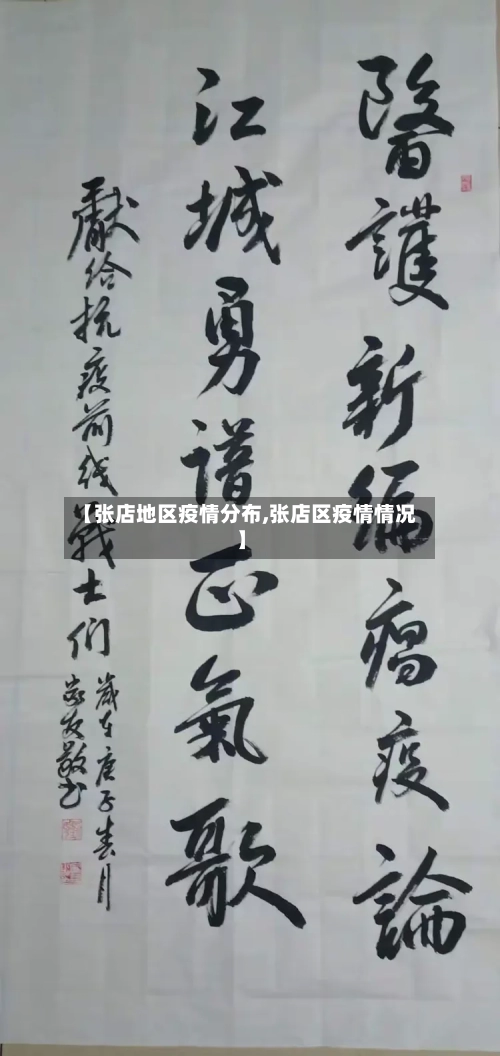 醫護新編瘟疫論
江城勇谱正氣歌
獻给抗疫前线戰士们
歲在庚子春月
友敬书
【张店地区疫情分布,张店区疫情情况
】